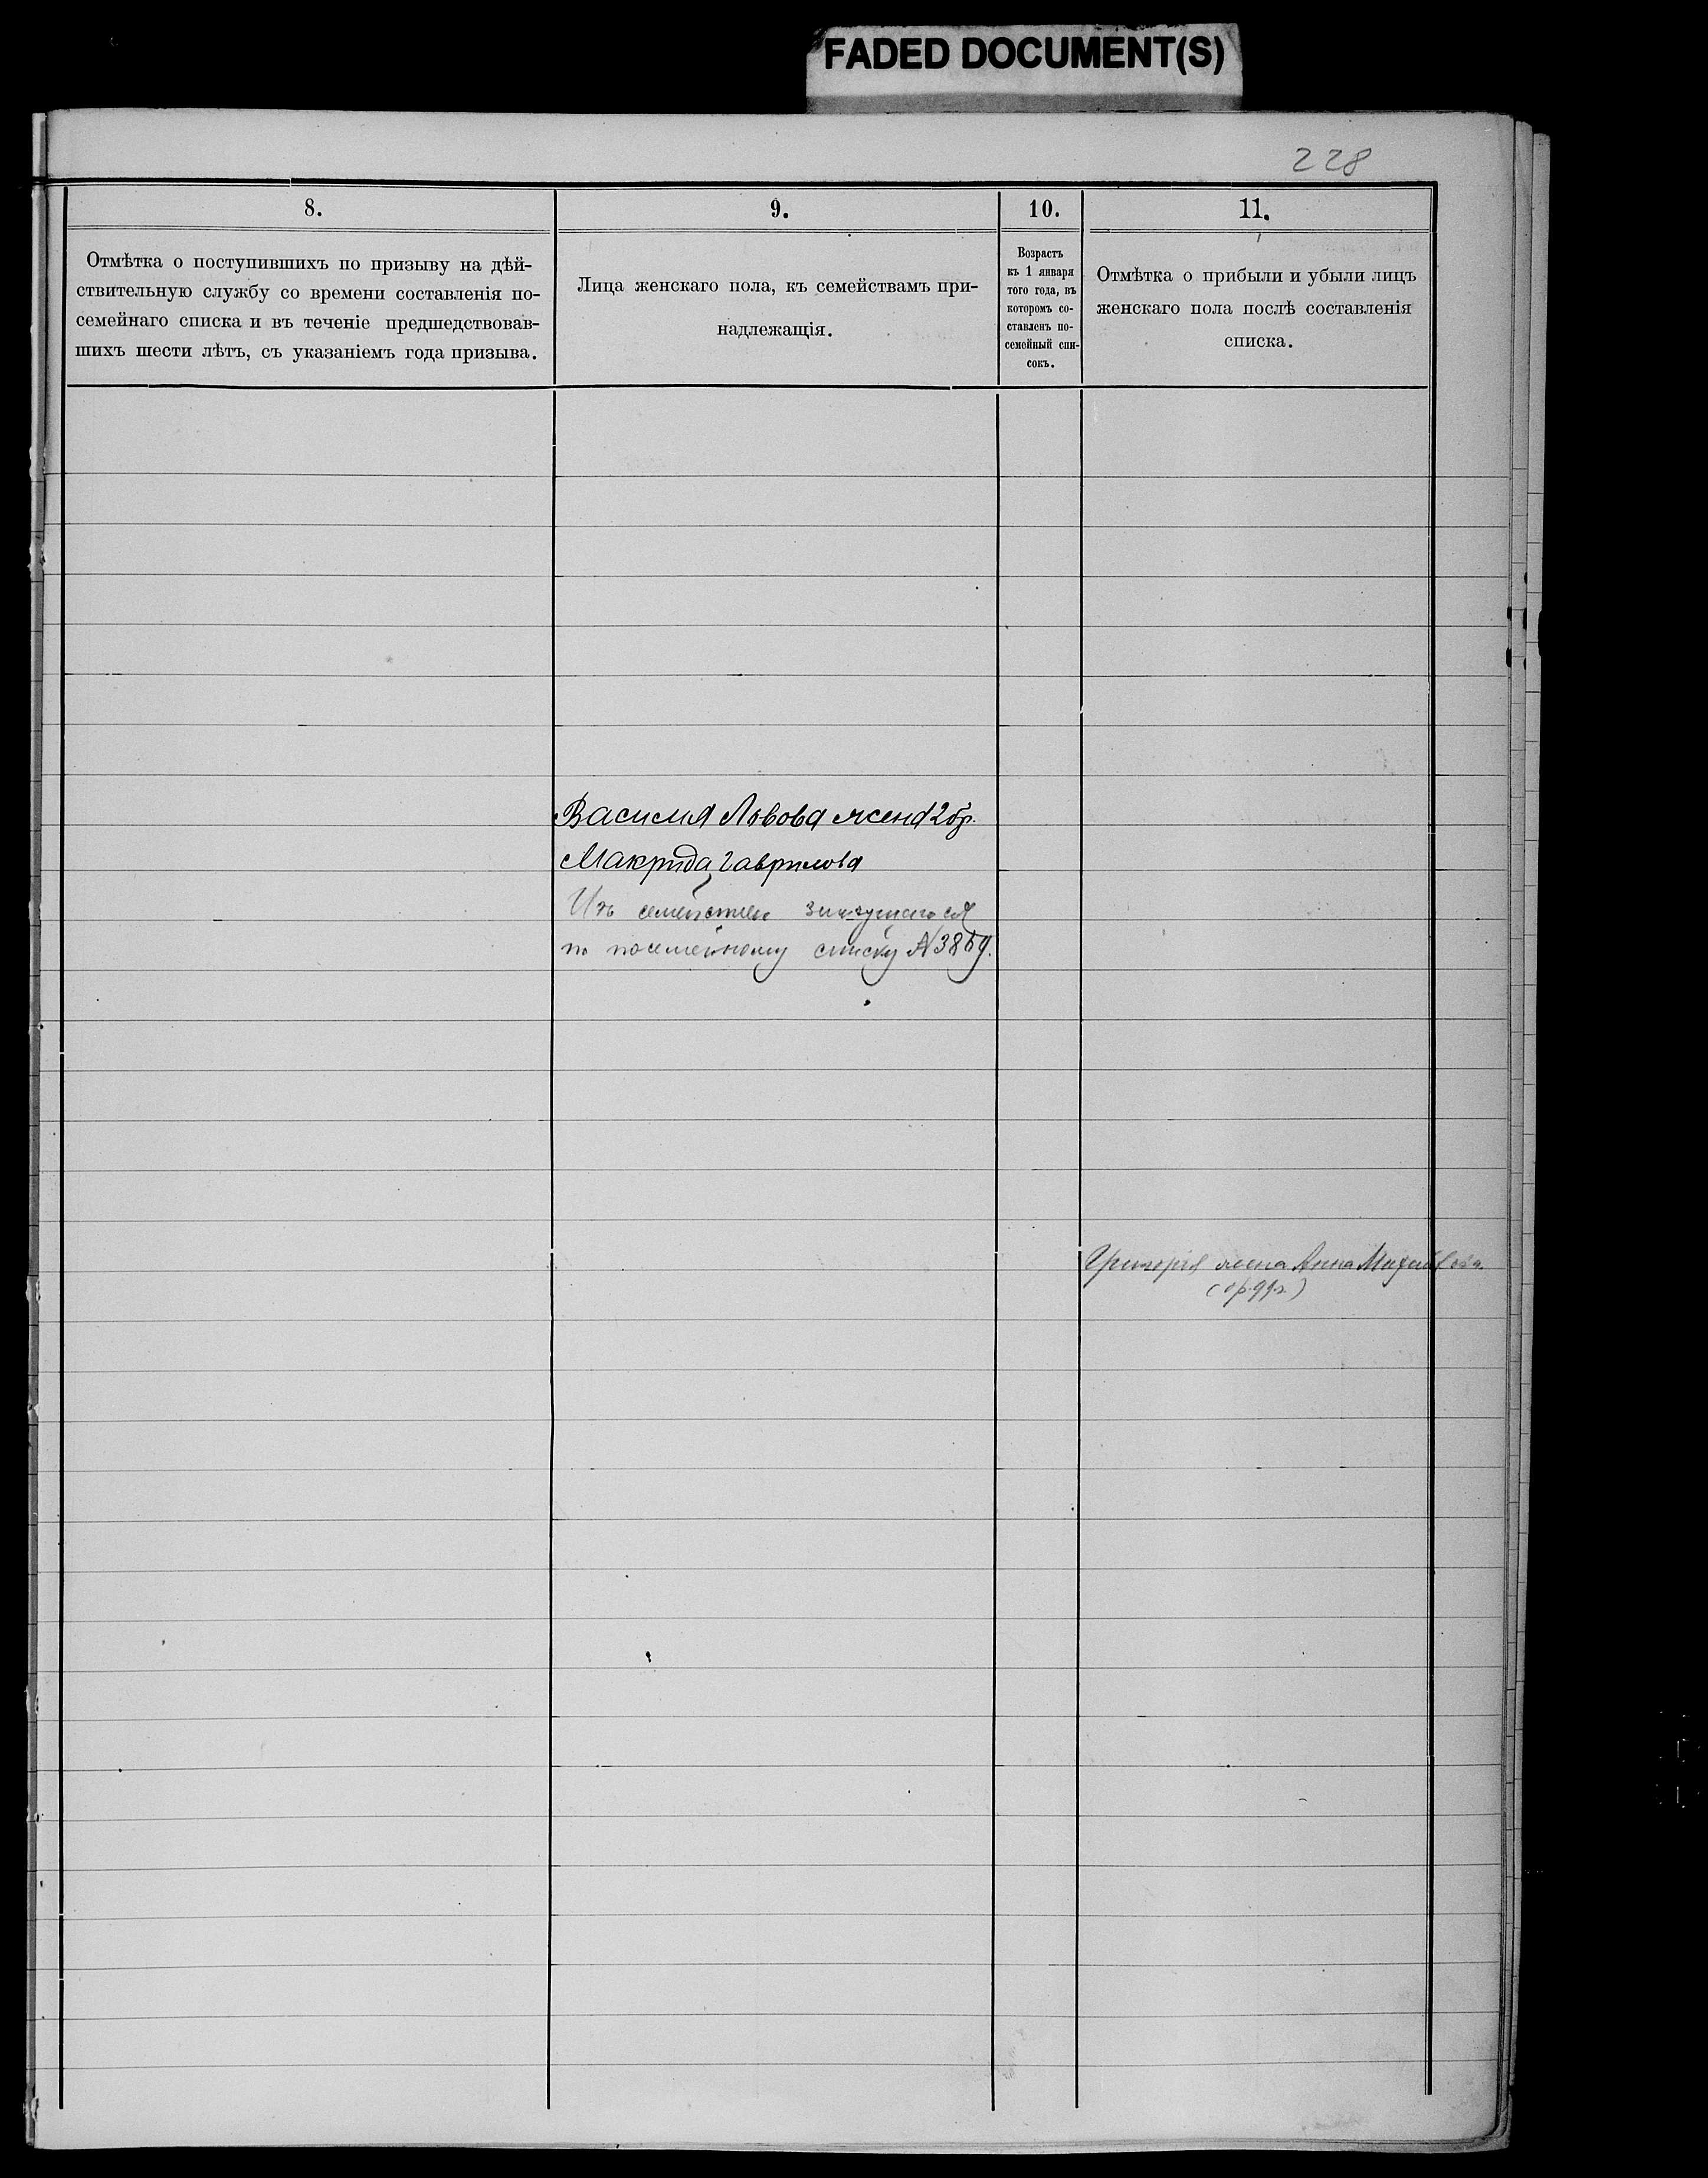 FADED DOCUMENT(S)
228
8.
Отмѣтка о поступившихъ по призыву на дѣй-
ствительную службу со времени составленія по-
семейнаго списка и въ теченіе предшедствовав-
шихъ шести лѣтъ, съ указаніемъ года призыва.
9.
Лица женскаго пола, къ семействамъ при-
надлежащія.
10.
Возрастъ
къ 1 января
того года, въ
которомъ со-
ставленъ по-
семейный спи-
сокъ.
11.
Отмѣтка о прибыли и убыли лицъ
женскаго пола послѣ составленія
списка.
Василія Львова жена 2 бр.
Макрида Гаврилова
Изъ
по посемейному списку № 3869.
Григорія жена Анна Михайлова